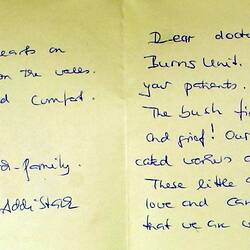 earts on
on the walls.
d comfort.
d-family.
Addi Stack
Dear doct
Burns Unit.
your patients.
The bush fi
and grief! Our
cated works
These little
love and can
that we are w